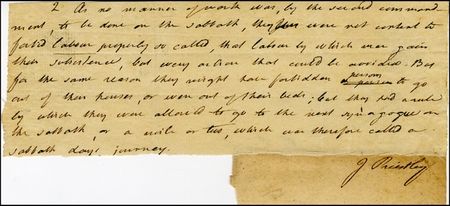 2 As no manner of work was, by the second command
ment, to be done on the sabbath, they were not content to
forbid labour properly so called, that labour by which men gain
their subsistence, but every action that could be avoided. But
for the same reason they might have forbidden person to go
out of their houses, or even out of their beds; but they had a rule
by which they were allowed to go to the next synagogue on
the sabbath, or a mile or two, which was therefore called a
sabbath days journey.
J Priestley